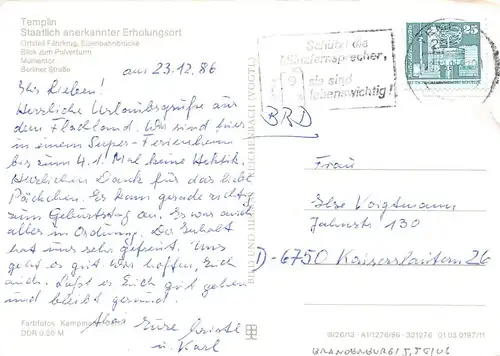 Templin
Staatlich anerkannter Erholungsort
Ortsteil Fährkrug, Eisenbahnbrücke
Blick zum Pulverturm
Mühlentor
Berliner Straße
am 23.12.86
Ihr Lieben!
Herrliche Urlaubsgrüße aus
dem Flachland. Wir sind hier
in einem Super-Ferienheim
bis zum 4.1. Mal keine Hektik.
Herzlichen Dank für das liebe
Päckchen. Es kam gerade richtig
zum Geburtstag an. Es war auch
alles in Ordnung. Der Inhalt
hat uns sehr gefreut. Uns
geht es gut. Wir hoffen, Euch
auch. Laßt es Euch gut gehen
und bleibt gesund.
Eure
u. Karl
Farbfotos Kampmann
DDR 0,50 M
BILD UND HEIMAT REICHENBACH (VOGTL)
Schützt die
Münzfernsprecher,
sie sind
lebenswichtig!
25
BRD
Frau
Else Voigtmann
Jahnstr. 130
D-6750 Kaiserslautern 26
A1/1276/86 321276 01 03 0197/11